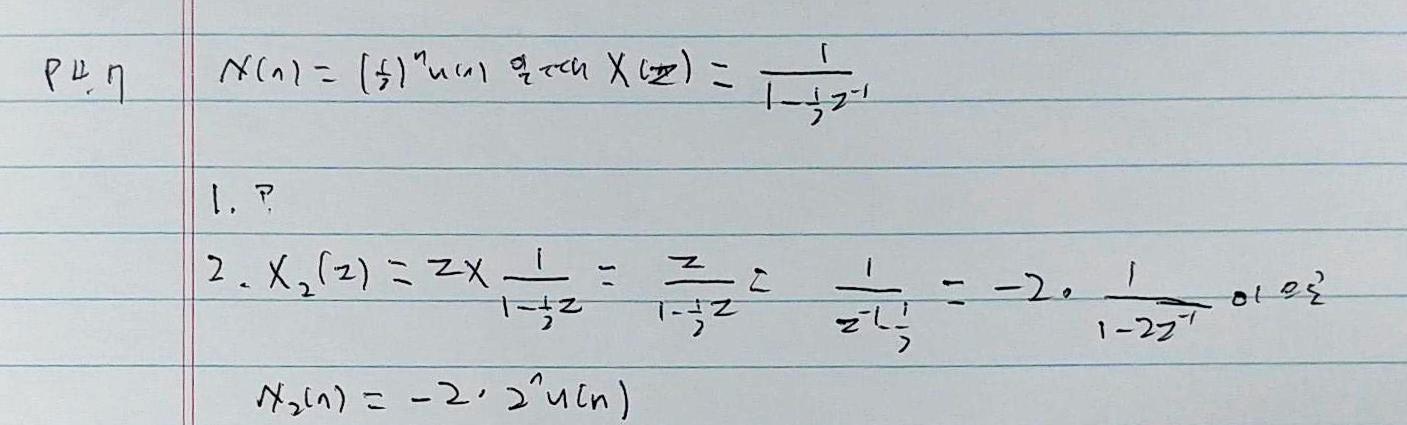 P4.7 x(n) = (1/2)^n u(n) 일 때 X(z) = 1/(1-1/2 z^-1)
1. ?
2. X_2(z) = z× 1/(1-1/2 z) = z/(1-1/2 z) = 1/(z^-1-1/2) = -2 · 1/(1-2z^-1) 이므로
x_2(n) = -2 · 2^n u(n)